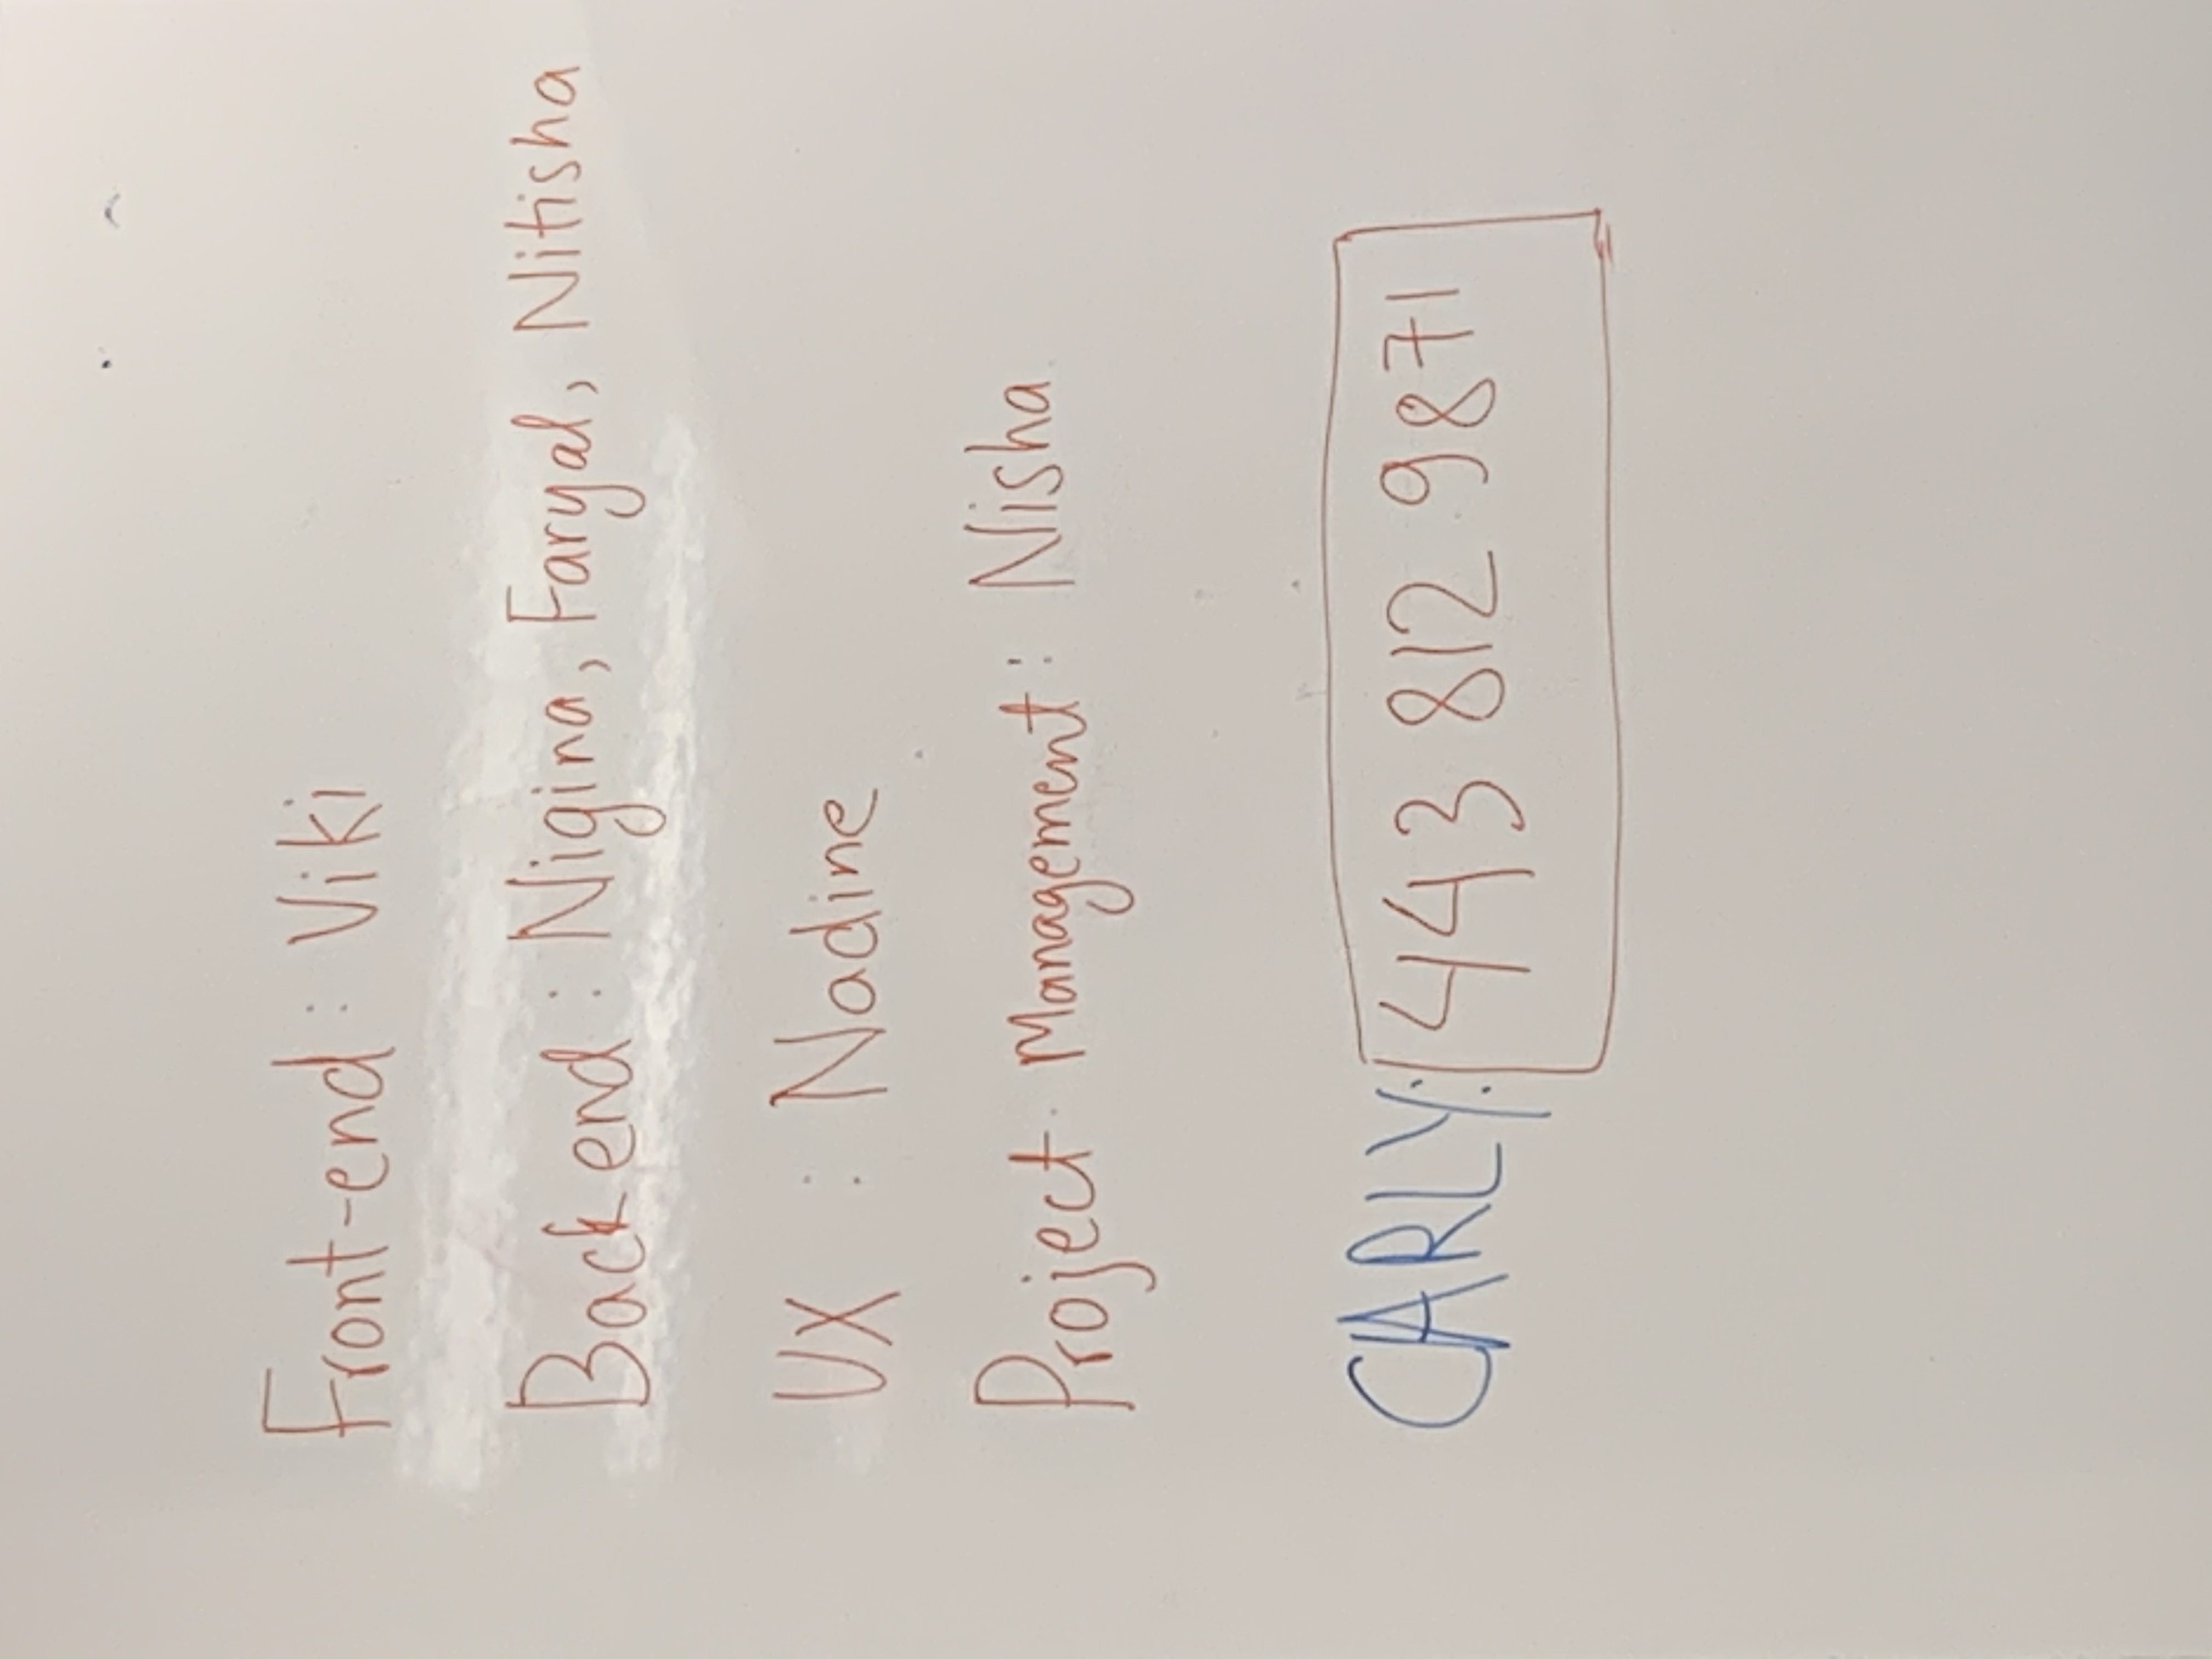 Front-end: Viki
Backend: Nigina, Faryal, Nitisha
UX : Nadine
Project Management: Nisha
CARLY: 443 812 9871